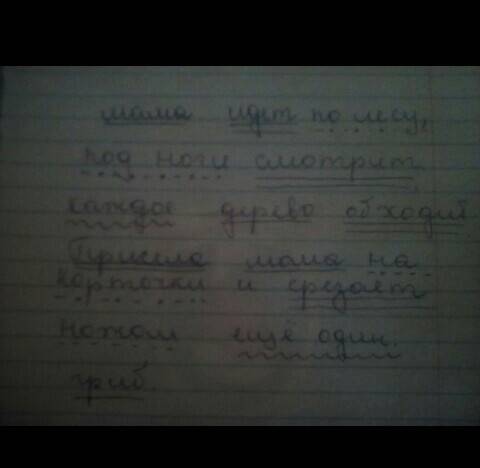 мама идет по лесу,
под ноги смотрит
каждое дерево обходит
Присела мама на
корточки и срезает
ножом ещё один
гриб.